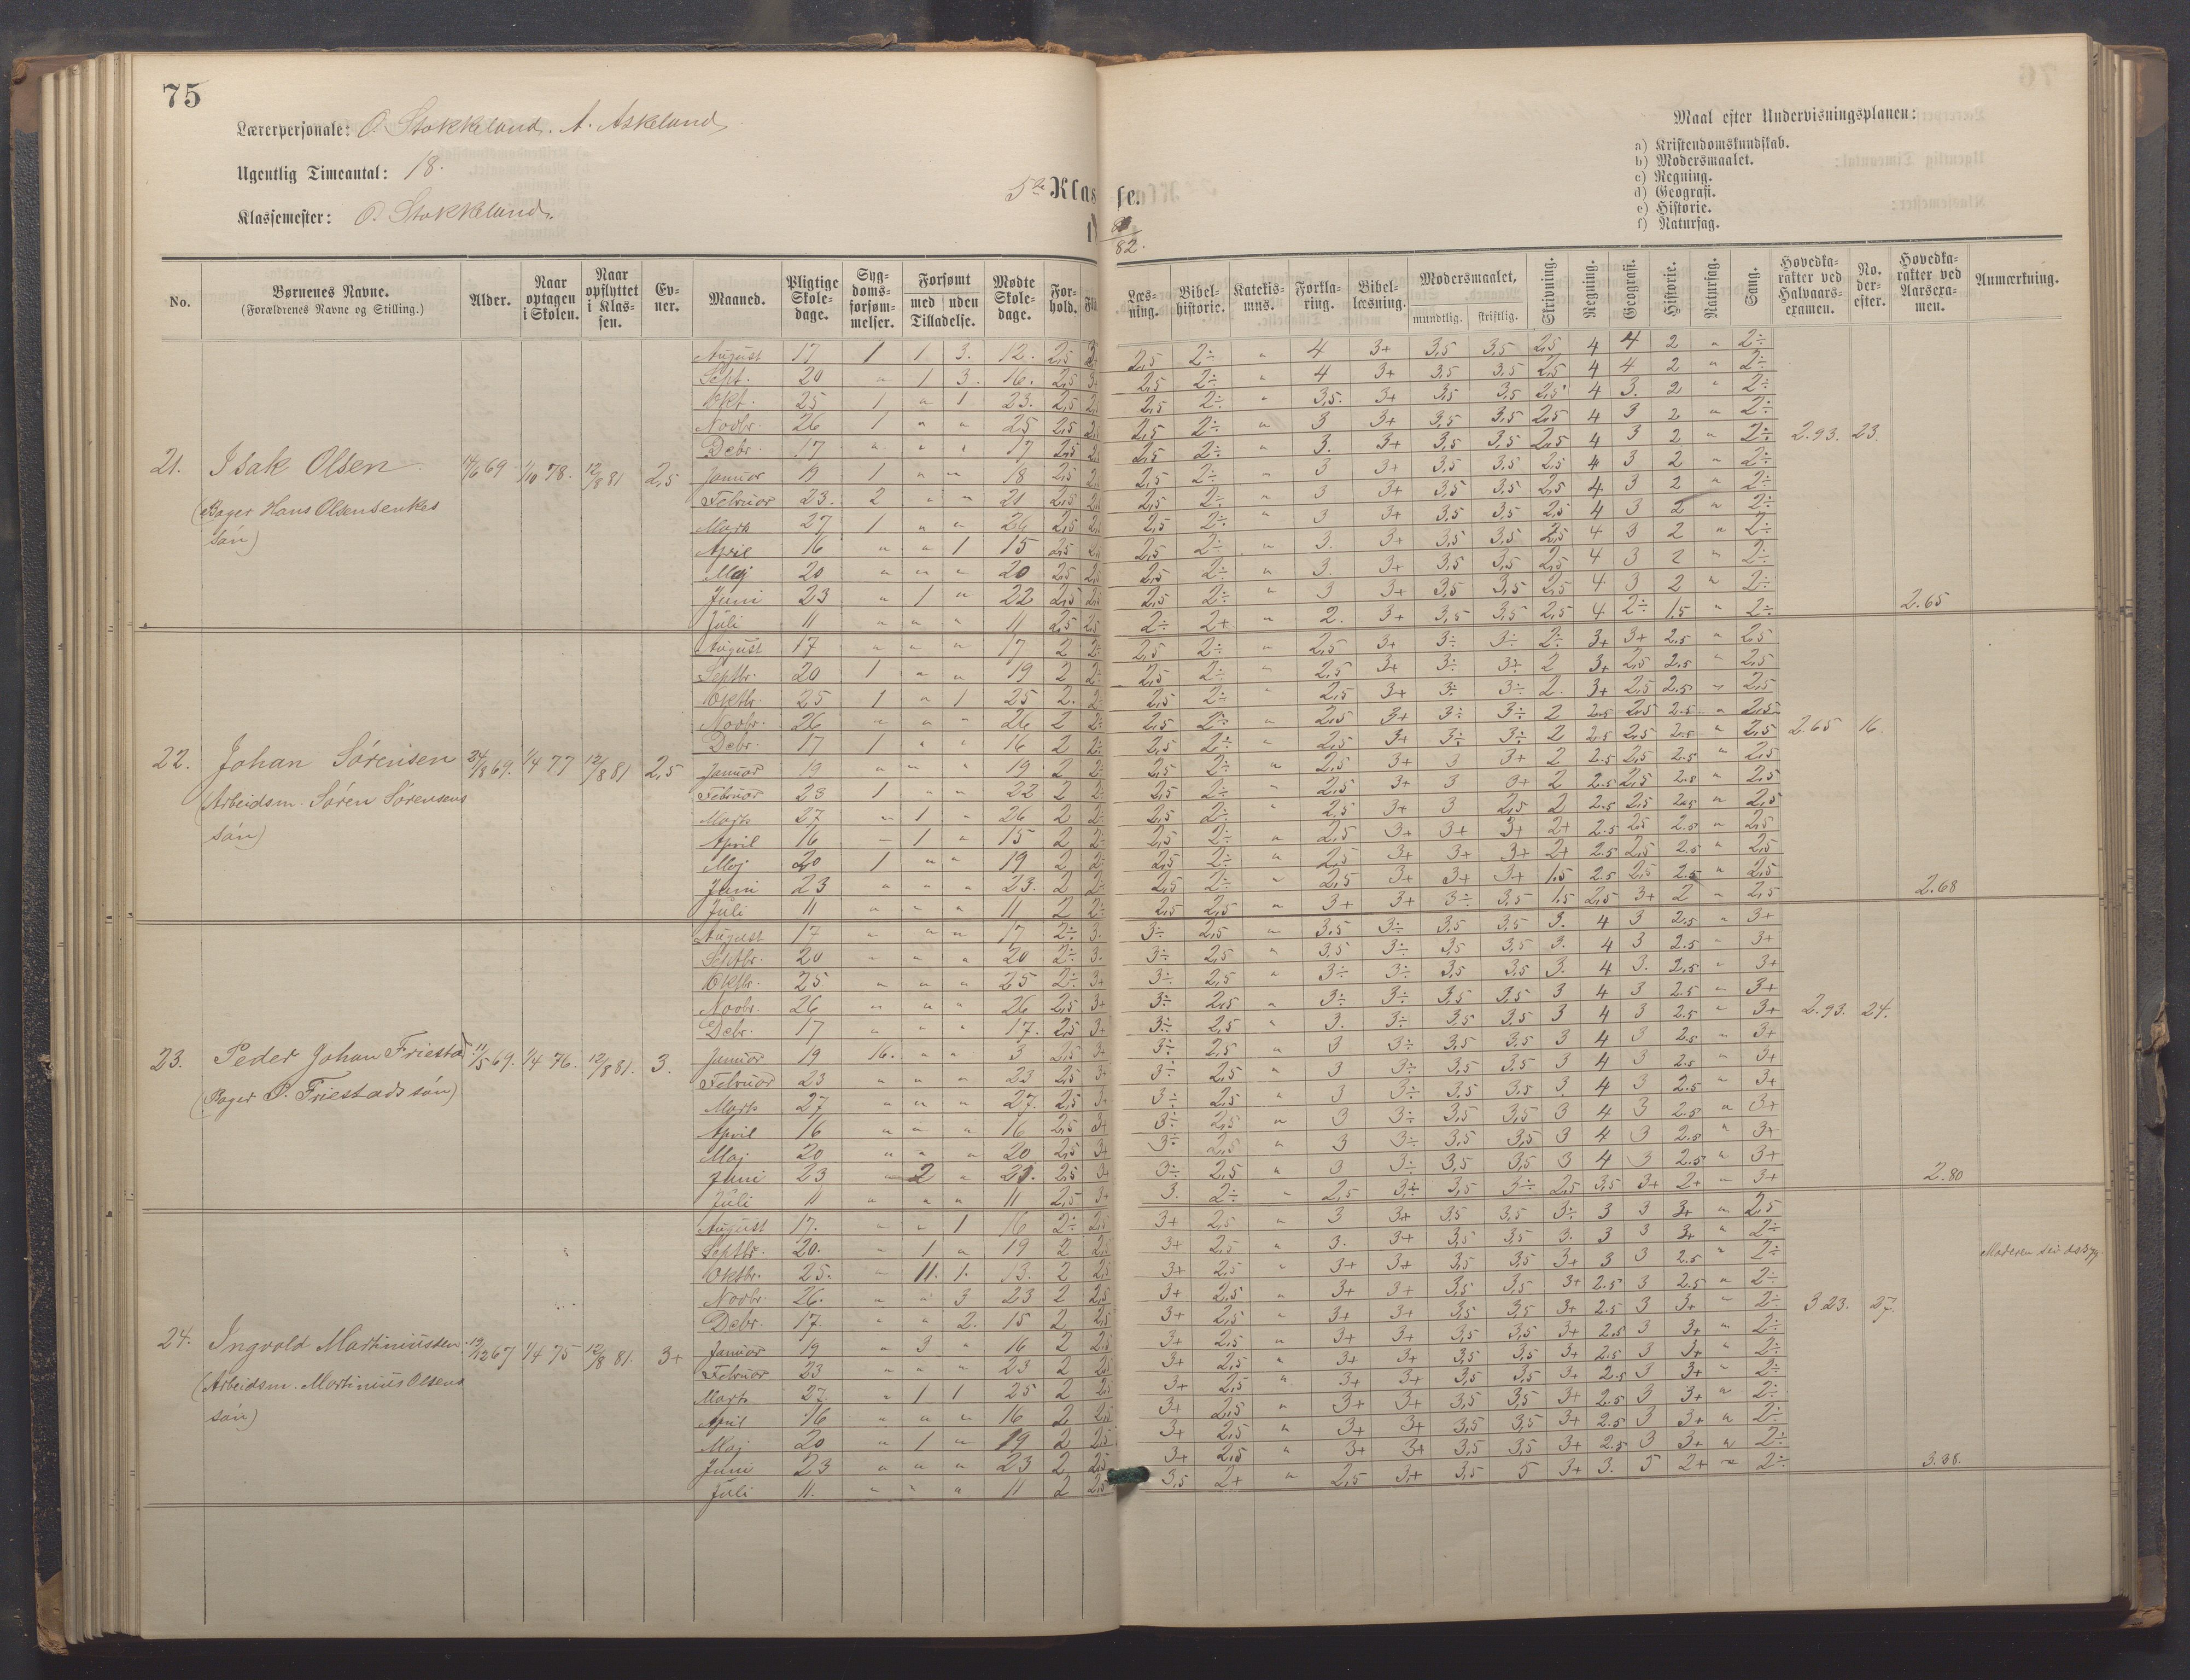 75
Lærerpersonale: O. Stokkeland. A. Askeland
Ugentlig Timeantal: 18.
Klassemester: O. Stokkeland.
5te Klasse.
82.
Maal efter Undervisningsplanen:
a) Kristendomskundskab.
b) Modersmaalet.
c) Regning.
d) Geografi.
e) Historie.
f) Naturfag.
No. | Børnenes Navne. (Forældrenes Navne og Stilling.) | Alder. | Naar optagen i Skolen. | Naar opflyttet i Klassen. | Evner. | Maaned. | Pligtige Skoledage. | Sygdomsforsømmelser. | Forsømt med / uden Tilladelse. | Mødte Skoledage. | Forhold. | Læsning. | Bibelhistorie. | Katekismus. | Forklaring. | Bibellæsning. | Modersmaalet, mundtlig. skriftlig. | Skrivning. | Regning. | Geografi. | Historie. | Naturfag. | Sang. | Hovedkarakter ved Halvaarsexamen. | No. derefter. | Hovedkarakter ved Aarsexamen. | Anmærkning.
21. Isak Olsen 14/6 69 1/10 78. 12/8 81 2,5
(Bager Hans Olsens enkes
søn)
August 17 1 1 3. 12. 2,5 2,5 2÷ " 4 3+ 3,5 3,5 2,5 4 4 2 " 2÷
Sept. 20 " 1 3. 16. 2,5 2,5 2÷ " 4 3+ 3,5 3,5 2,5 4 4 2 " 2÷
Okt. 25 1 " 1 23. 2,5 2,5 2÷ " 3,5. 3+ 3,5 3,5 2,5 4 3. 2 " 2÷
Novbr. 26 1 " " 25 2,5 2,5 2÷ " 3 3+ 3,5 3,5 2,5 4 3 2 " 2÷
Debr. 17 " " " 17 2,5 2,5 2÷ " 3. 3+ 3,5 3,5 2,5 4 3 2 " 2÷ 2.93. 23.
Januar 19 1 " " 18 2,5 2,5 2÷ " 3 3+ 3,5 3,5 2,5 4 3 2 " 2÷
Februar 23. 2 " " 21 2,5 2,5 2÷ " 3 3+ 3,5 3,5 2,5 4 3 2 " 2÷
Marts 27 1 " " 26 2,5 2,5 2÷ " 3 3+ 3,5 3,5 2,5 4 3 2 " 2÷
April 16 " " 1 15 2,5 2,5 2÷ " 3. 3+ 3,5 3,5 2,5 4 3 2 " 2÷
Maj 20 " " " 20 2,5 2,5 2,5 2÷ " 3. 3+ 3,5 3,5 2,5 4 3 2 " 2÷
Juni 23 " 1 " 22 2,5 2,5 2,5 2÷ " 3 3+ 3,5 3,5 2,5 4 3 2 " 2÷
Juli 11 " " " 11 2,5 2,5 2÷ 2+ " 2. 3+ 3,5 3,5 2,5 4 2÷ 1,5 " 2÷ 2.65
22. Johan Sørensen 24/8 69. 1/4 77 12/8 81 2,5
(Arbeidsm. Søren Sørensens
søn)
August 17 " " " 17 2 2÷ 2,5 2÷ " 2,5 3+ 3÷ 3÷ 2÷ 3+ 3+ 2.5 " 2,5
Septbr. 20 1 " " 19 2 2÷ 2,5 2÷ " 2,5 3+ 3÷ 3÷ 2 3+ 2,5 2.5 " 2,5
Oktbr. 25 1 " 1 25 2. 2÷ 2,5 2÷ " 2,5 3+ 3÷ 3÷ 2. 3+ 2,5 2.5 " 2,5
Novbr. 26 " " " 26 2 2÷ 2,5 2÷ " 2,5 3+ 3÷ 3÷ 2 2.5 2,5 2.5 " 2,5
Debr. 17 1 " " 16 2 2÷ 2,5 2÷ " 2,5 3+ 3÷ 3÷ 2 2.5 2,5 2.5 " 2,5 2.65 16.
Januar 19 " " " 19 2 2÷ 2,5 2÷ " 2,5 3+ 3 3+ 2 2.5 2,5 2.5 " 2,5
Februar 23 1 " " 22 2 2÷ 2,5 2÷ " 2,5 3+ 3 3+ 2 2.5 2,5 2.5 " 2,5
Marts 27 " 1 " 26 2 2÷ 2,5 2÷ " 2,5 3+ 3 2,5 2 2.5 2,5 2.5 " 2,5
April 16 " 1 " 15 2 2÷ 2,5 2÷ " 2,5 3+ 3+ 3+ 2+ 2.5 2,5 2.5 " 2,5
Maj 20 1 " " 19 2 2÷ 2,5 2÷ " 2,5 3+ 3+ 3+ 2+ 2.5 2,5 2.5 " 2,5
Juni 23 " " " 23. 2 2÷ 2,5 2÷ " 2,5 3+ 3+ 3+ 1,5 2.5 2,5 2.5 " 2,5
Juli 11 " " " 11 2 2÷ 2,5 2,5 " 3+ 3+ 3÷ 3,5 1,5 2,5 3+ 2 " 2,5 2.68
23. Peder Johan Friestad 11/5 69. 1/4 76. 12/8 81. 3.
(Bager P. Friestads søn)
August 17 " " " 17 2÷ 3. 3÷ 2,5 " 3,5 3÷ 3,5 3,5 3. 4 3 2.5 " 3+
Septbr. 20 " " " 20 2÷ 3. 3÷ 2,5 " 3,5 3÷ 3,5 3,5 3. 4 3 2.5 " 3+
Oktbr. 25 " " " 25 2÷ 3+ 3÷ 2,5 " 3÷ 3÷ 3,5 3,5 3. 4 3. 2,5 " 3+
Novbr. 26 " " " 26 2,5 3+ 3÷ 2,5 " 3÷ 3÷ 3,5 3,5 3 4 3 2.5 " 3+
Debr. 17 " " " 17. 2,5 3+ 3÷ 2,5 " 3. 3÷ 3,5 3,5 3 4 3 2.5 " 3+ 2.93. 24.
Januar 19 16. " " 3 2,5 3+ 3÷ 2,5 " 3 3÷ 3,5 3,5 3 4 3 2.5 " 3+
Februar 23 " " " 23 2,5 3+ 3÷ 2,5 " 3 3÷ 3,5 3,5 3 4 3 2.5 " 3+
Marts 27 " " " 27. 2,5 3+ 3÷ 2,5 " 3 3÷ 3,5 3,5 3 4 3 2.5 " 3+
April 16 " " " 16 2,5 3+ 3÷ 2,5 " 3 3÷ 3,5 3,5 3 4 3 2.5 " 3+
Maj 20 " " " 20 2,5 3+ 3÷ 2,5 " 3 3÷ 3,5 3,5 3 4 3 2.5 " 3+
Juni 23 " 2 " 21. 2,5 3+ 3÷ 2,5 " 3 3÷ 3,5 3,5 3 4 3 2.5 " 3+
Juli 11 " " " 11 2,5 3+ 3. 2÷ " 2,5 3÷ 3,5 3÷ 2,5 3,5 3+ 2+ " 3+ 2.80
24. Ingvald Martiniussen 12/12 67 1/4 75 12/8 81. 3+
(Arbeidsm. Martinius Olsens
søn)
August 17. " " 1 16 2÷ 2,5 3+ 2,5 " 3 3+ 3,5 3,5 3÷ 3 3 3+ " 2,5
Septbr. 20. " 1 " 19 2 2,5 3+ 2,5 " 3. 3+ 3,5 3,5 3. 3 3 3+ " 2÷
Oktbr. 25. " 11. 1. 13. 2 2,5 3+ 2,5 " 3+ 3+ 3,5 3,5 3+ 3 3 2.5 " 2÷
Novbr. 26. " " 3 23 2 2,5 3+ 2,5 " 3+ 3+ 3,5 3,5 3+ 2.5 3 2.5 " 2÷
Debr. 17. " " 2. 15 2 2,5 3+ 2,5 " 3+ 3+ 3,5 3,5 3+ 2.5 3 3+ " 2÷ 3.23. 27.
Januar 19 " 3 " 16 2 2,5 3+ 2,5 " 3+ 3+ 3,5 3,5 3+ 2.5 3 3+ " 2÷
Februar 23 " " " 23 2 2,5 3+ 2,5 " 3+ 3+ 3,5 3,5 3+ 2.5 3 3+ " 2÷
Marts 27. " 1 1 25 2 2,5 3+ 2,5 " 3+ 3+ 3,5 3,5 3+ 2.5 3 3+ " 2÷
April 16 " " " 16 2 2,5 3+ 2,5 " 3+ 3+ 3,5 3,5 3+ 2.5 3 3+ " 2÷
Maj 20 " 1 " 19 2 2,5 3+ 2,5 " 3+ 3+ 3,5 3,5 3+ 2.5 3 3+ " 2÷
Juni 23 " " " 23 2 2,5 3+ 2,5 " 3+ 3+ 3,5 3,5 3+ 2.5 3 3+ " 2÷
Juli 11. " " " 11 2 2,5 3,5 2+ " 2,5 3+ 3,5 5 3+ 3. 5 2+ " 2÷ 3.38.
Moderen